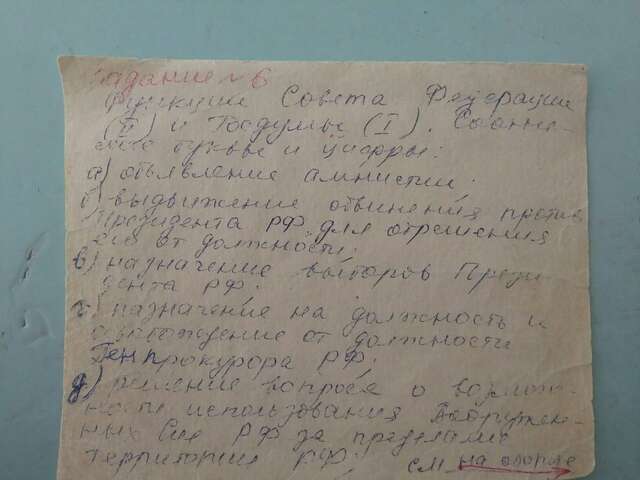 Задание № 6
Функции Совета Федерации
(II) и Госдумы (I). Соотне-
буквы и цифры:
а) объявление амнистии;
б) выдвижение обвинения против
Президента РФ для отрешения
его от должности;
в) назначение выборов Прези
дента РФ.
г) назначение на должность и
освобождение от должности
Генпрокурора РФ.
д) решение вопроса о возмож-
ности использования Вооружен-
ных Сил РФ за пределами
территории РФ.
см на обороте